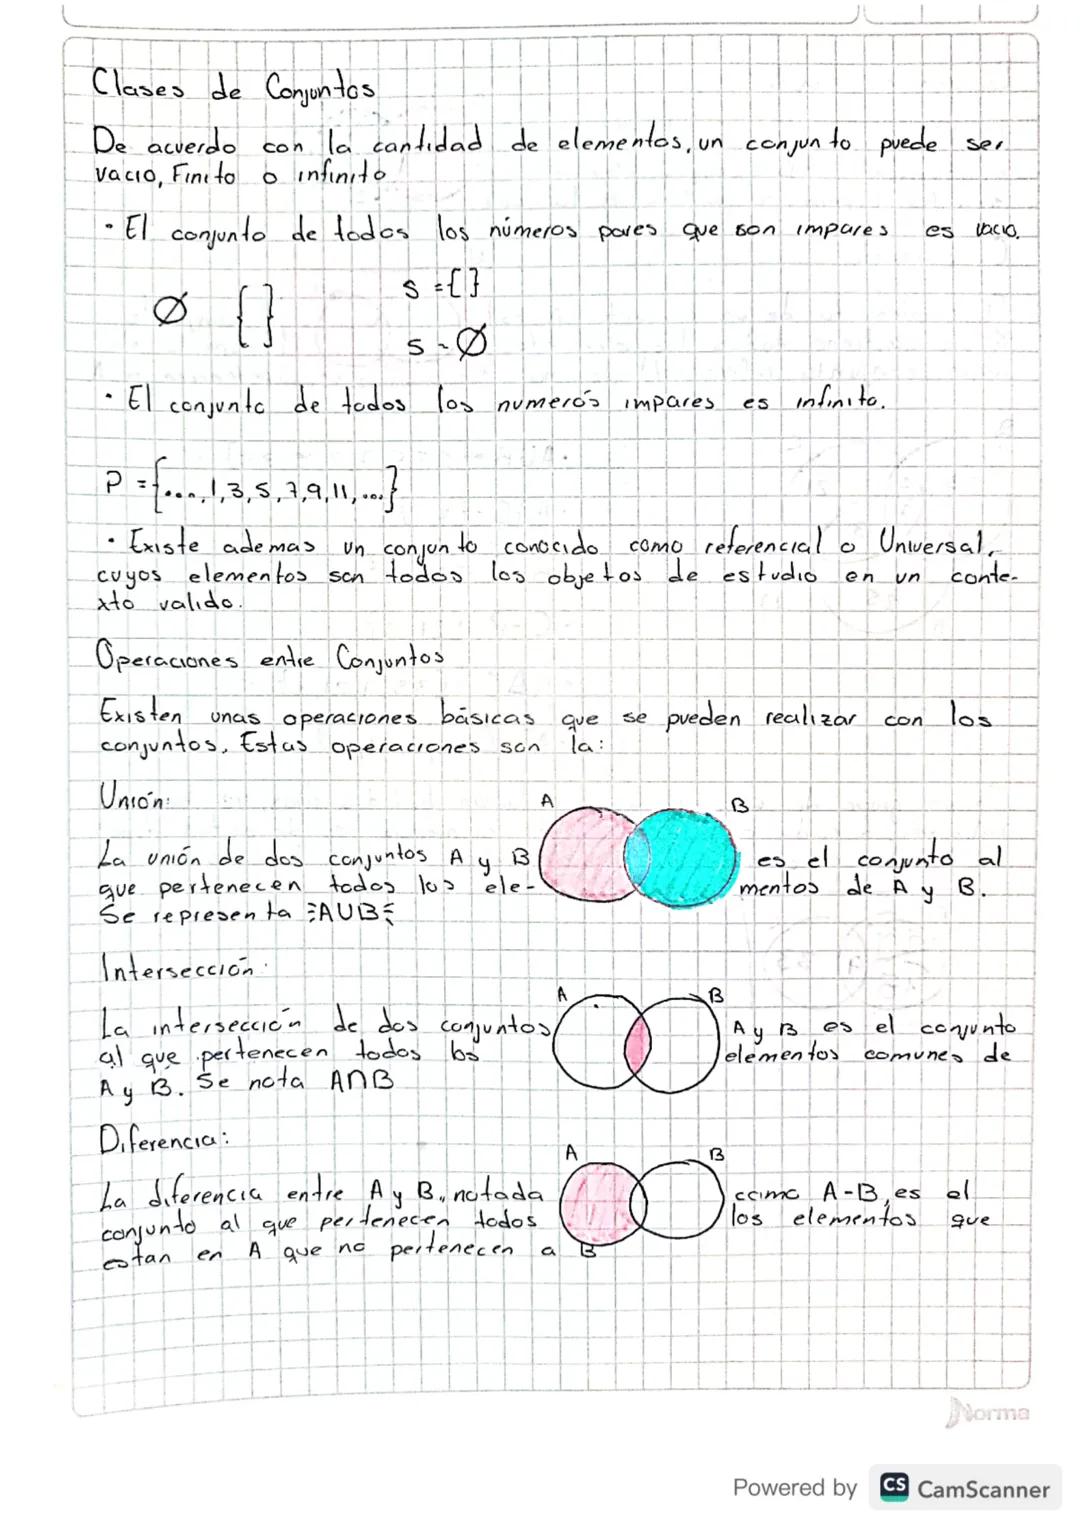 Clases de Conjuntos
De acuerdo con la cantidad de elementos, un conjunto puede ser
vacio, Finito o infinito
· El conjunto de todos los números pares que son impares es vacio.
Ø { } S = { }
S = Ø
· El conjunto de todos los numeros impares es infinito.
P = {..., 1, 3, 5, 7, 9, 11, ...}
· Existe ademas un conjunto conocido como referencial o Universal,
cuyos elementos son todos los objetos de estudio en un conte-
xto valido.
Operaciones entre Conjuntos
Existen unas operaciones básicas que se pueden realizar con los
conjuntos. Estas operaciones son la:
Unión:
A B
La unión de dos conjuntos A y B es el conjunto al
que pertenecen todos los ele- mentos de A y B.
Se representa AUB
Intersección:
A B
La intersección de dos conjuntos A y B es el conjunto
al que pertenecen todos los elementos comunes de
A y B. Se nota A∩B
Diferencia:
A B
La diferencia entre A y B, notada como A-B, es el
conjunto al que pertenecen todos los elementos que
estan en A que no pertenecen a B
Norma
Powered by CS CamScanner